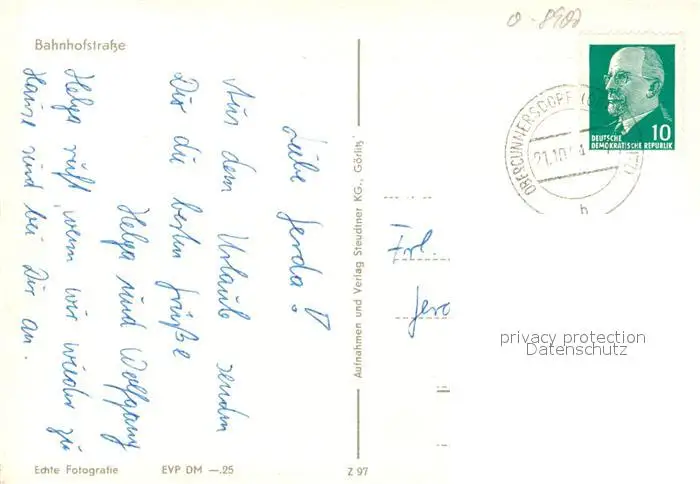 o-8902
Bahnhofstraße
DEUTSCHE
DEMOKRATISCHE REPUBLIK
10
OBERCUNNERSDORF
21.10
b
Liebe Gerda!
Aus dem Urlaub senden
Dir die besten Grüße
Helga und Wolfgang
Helga ruft, wenn wir wieder zu
Hause sind bei Dir an.
Aufnahmen und Verlag Steudtner KG., Görlitz
Frl.
privacy protection
Datenschutz
Echte Fotografie
EVP DM —.25
Z 97